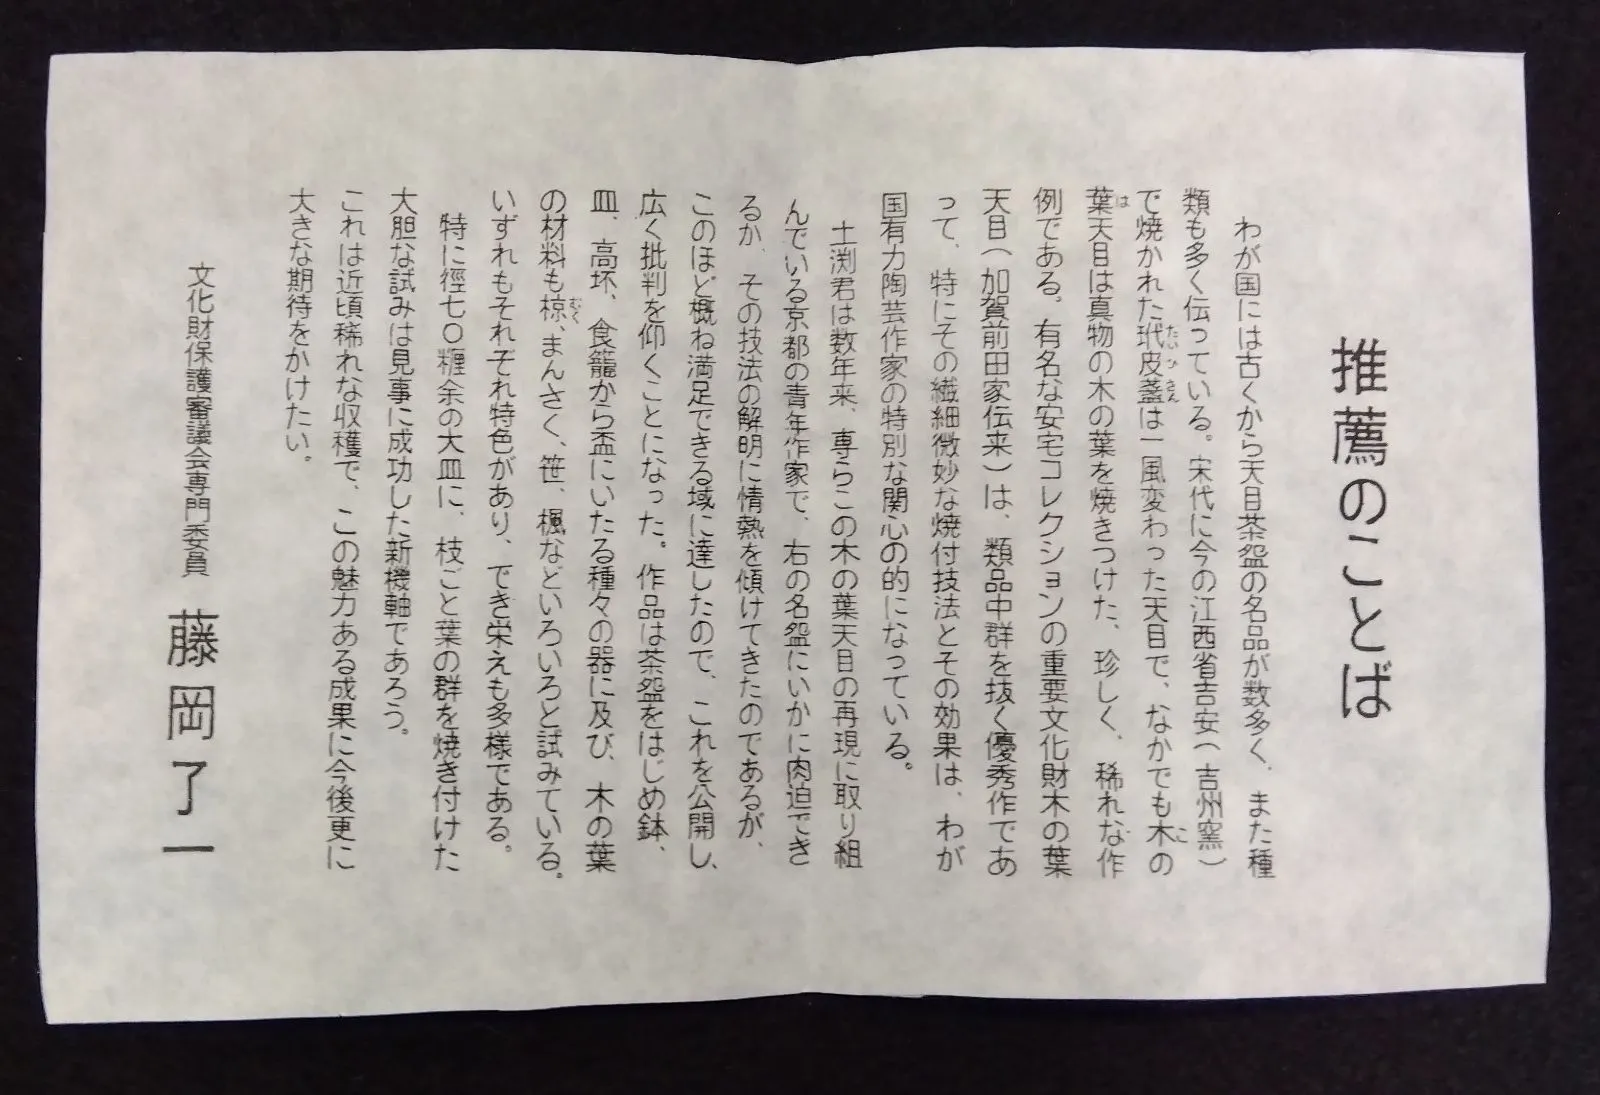 推薦のことば
わが国には古くから天目茶盌の名品が数多く、また種
類も多く伝っている。宋代に今の江西省吉安(吉州窯)
で焼かれた玳皮盞は一風変わった天目で、なかでも木の
葉天目は真物の木の葉を焼きつけた、珍しく、稀れな作
例である。有名な安宅コレクションの重要文化財木の葉
天目(加賀前田家伝来)は、類品中群を抜く優秀作であ
って、特にその繊細微妙な焼付技法とその効果は、わが
国有力陶芸作家の特別な関心の的になっている。
土渕君は数年来、専らこの木の葉天目の再現に取り組
んでいる京都の青年作家で、右の名盌にいかに肉迫でき
るか、その技法の解明に情熱を傾けてきたのであるが、
このほど概ね満足できる域に達したので、これを公開し、
広く批判を仰くことになった。作品は茶盌をはじめ鉢、
皿、高坏、食籠から盃にいたる種々の器に及び、木の葉
の材料も椋、まんさく、笹、楓などといろいろと試みている。
いずれもそれぞれ特色があり、でき栄えも多様である。
特に徑七〇糎余の大皿に、枝ごと葉の群を焼き付けた
大胆な試みは見事に成功した新機軸であろう。
これは近頃稀れな収穫で、この魅力ある成果に今後更に
大きな期待をかけたい。
文化財保護審議会専門委員 藤岡了一